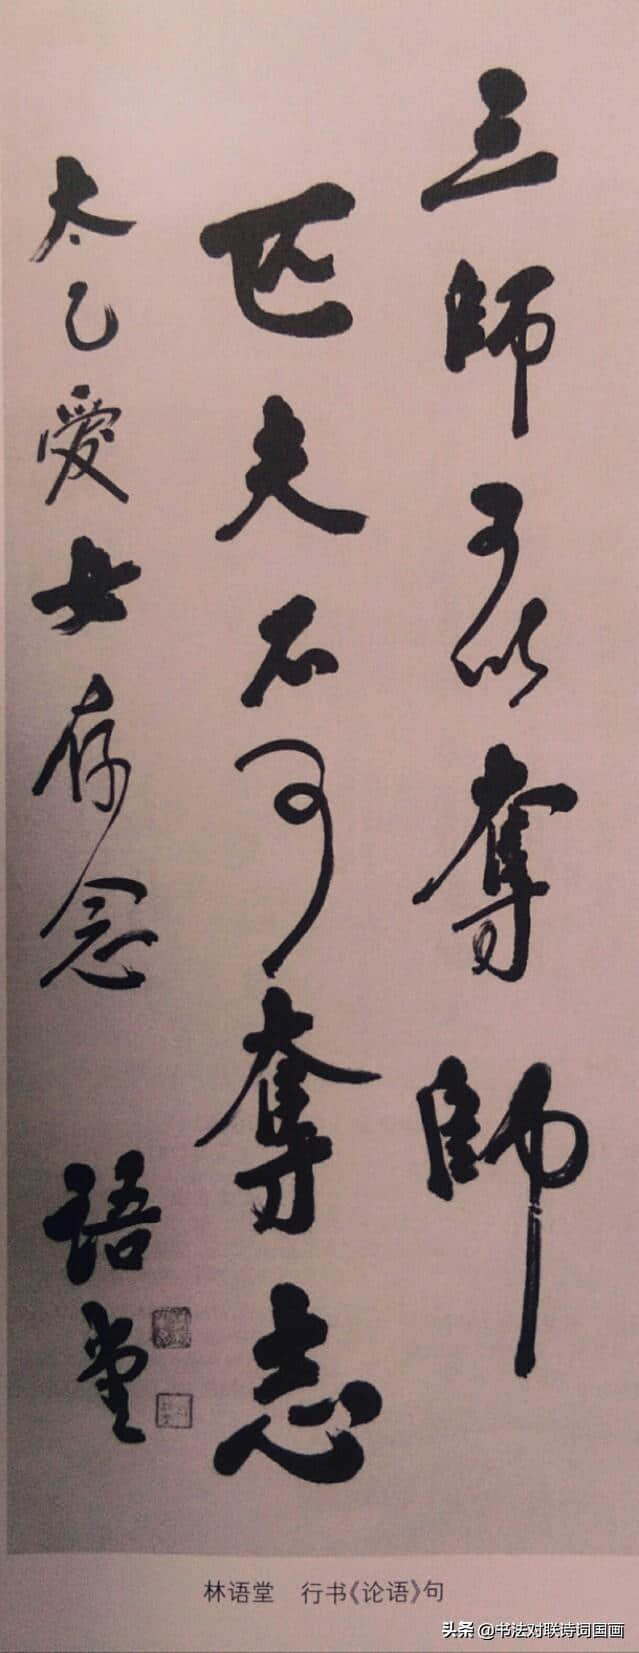 三師可以奪帥
匹夫不可奪志
太乙愛女存念 語堂
林语堂 行书《论语》句
头条 @书法对联诗词国画